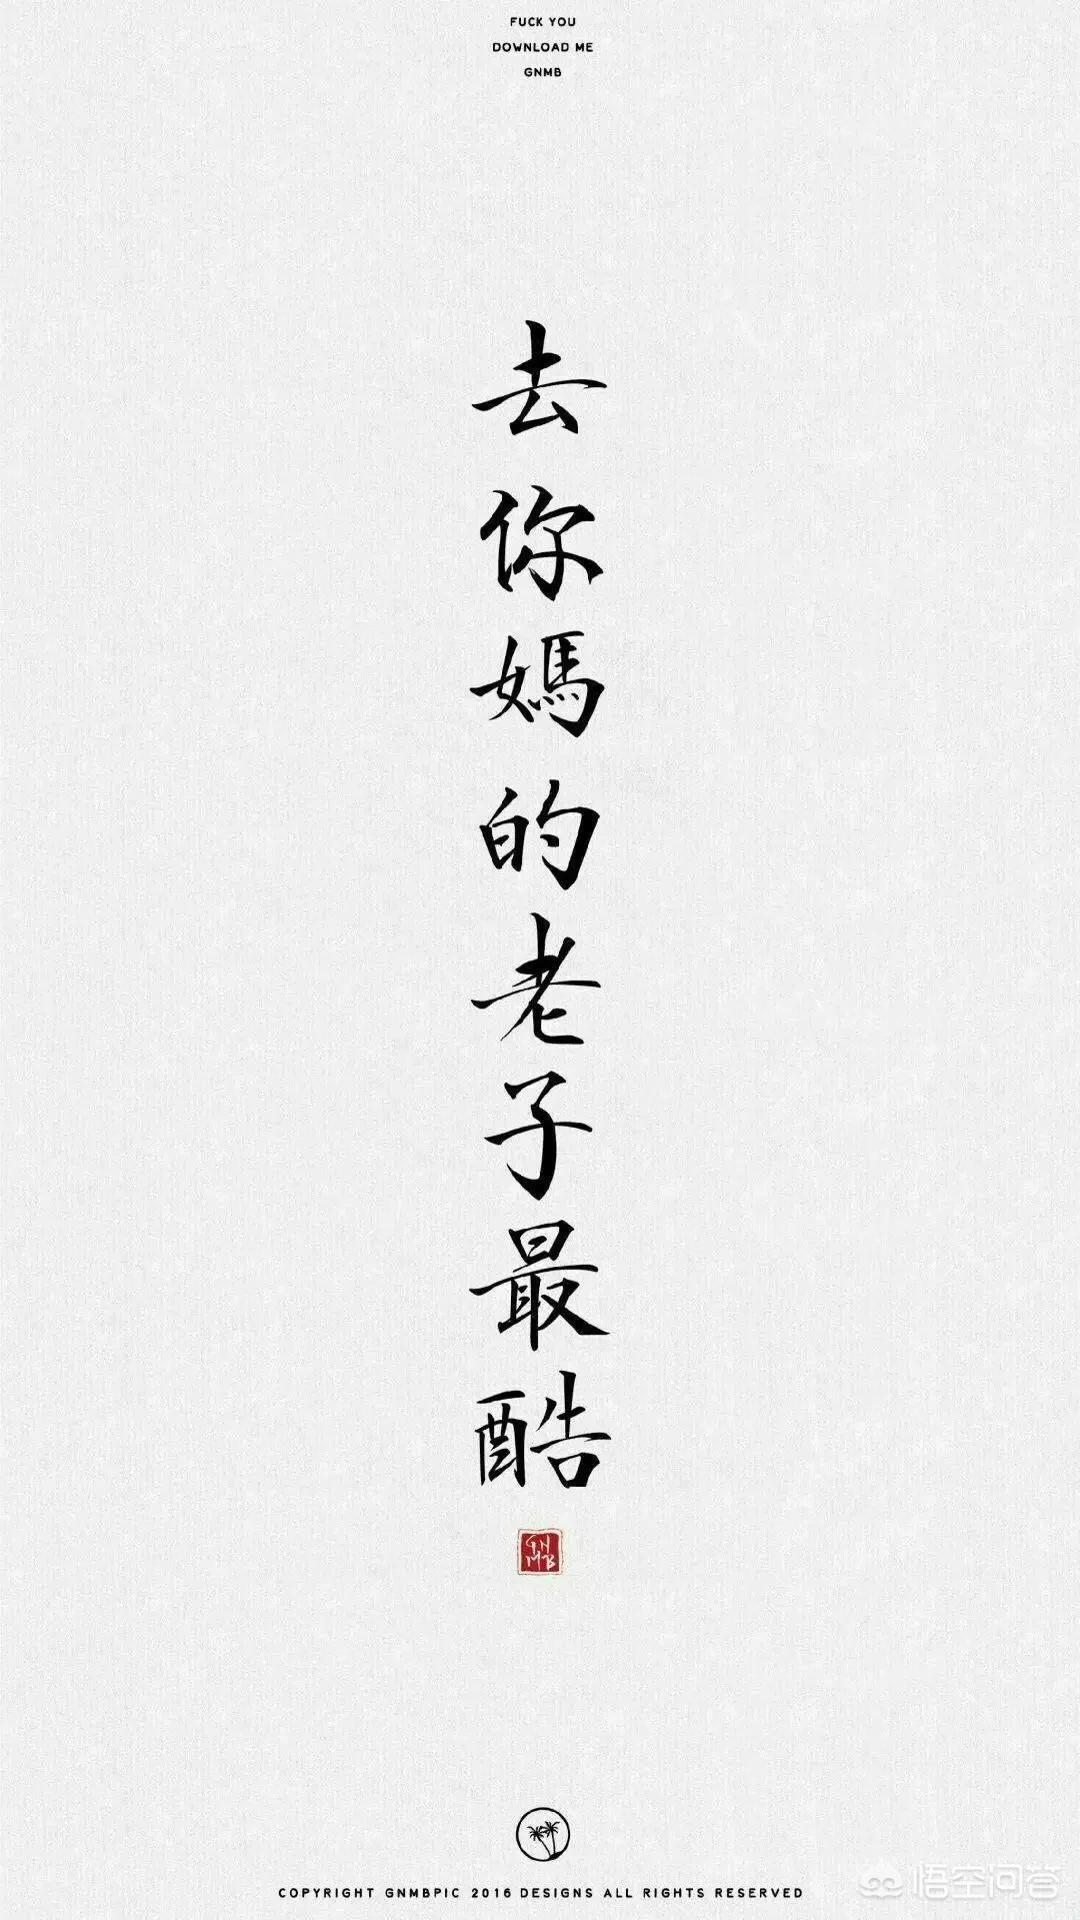 FUCK YOU
DOWNLOAD ME
GNMB
去你媽的老子最酷
GN
MB
COPYRIGHT GNMBPIC 2016 DESIGNS ALL RIGHTS RESERVED
悟空问答